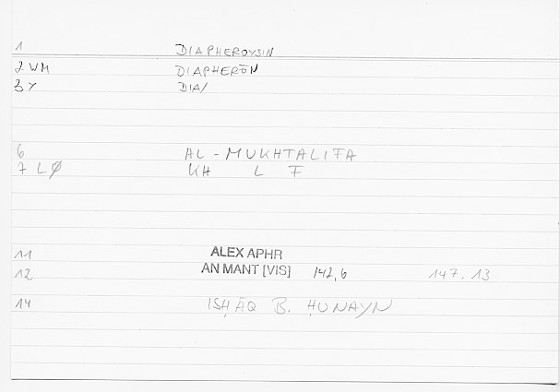 1 DIAPHEROYSIN
2 WM DIAPHERŌN
3 Y DIA/
6 AL-MUKHTALIFA
7 LØ KH L F
11 ALEX APHR
12 AN MANT [VIS] 142,6 147.13
14 ISḤĀQ B. ḤUNAYN